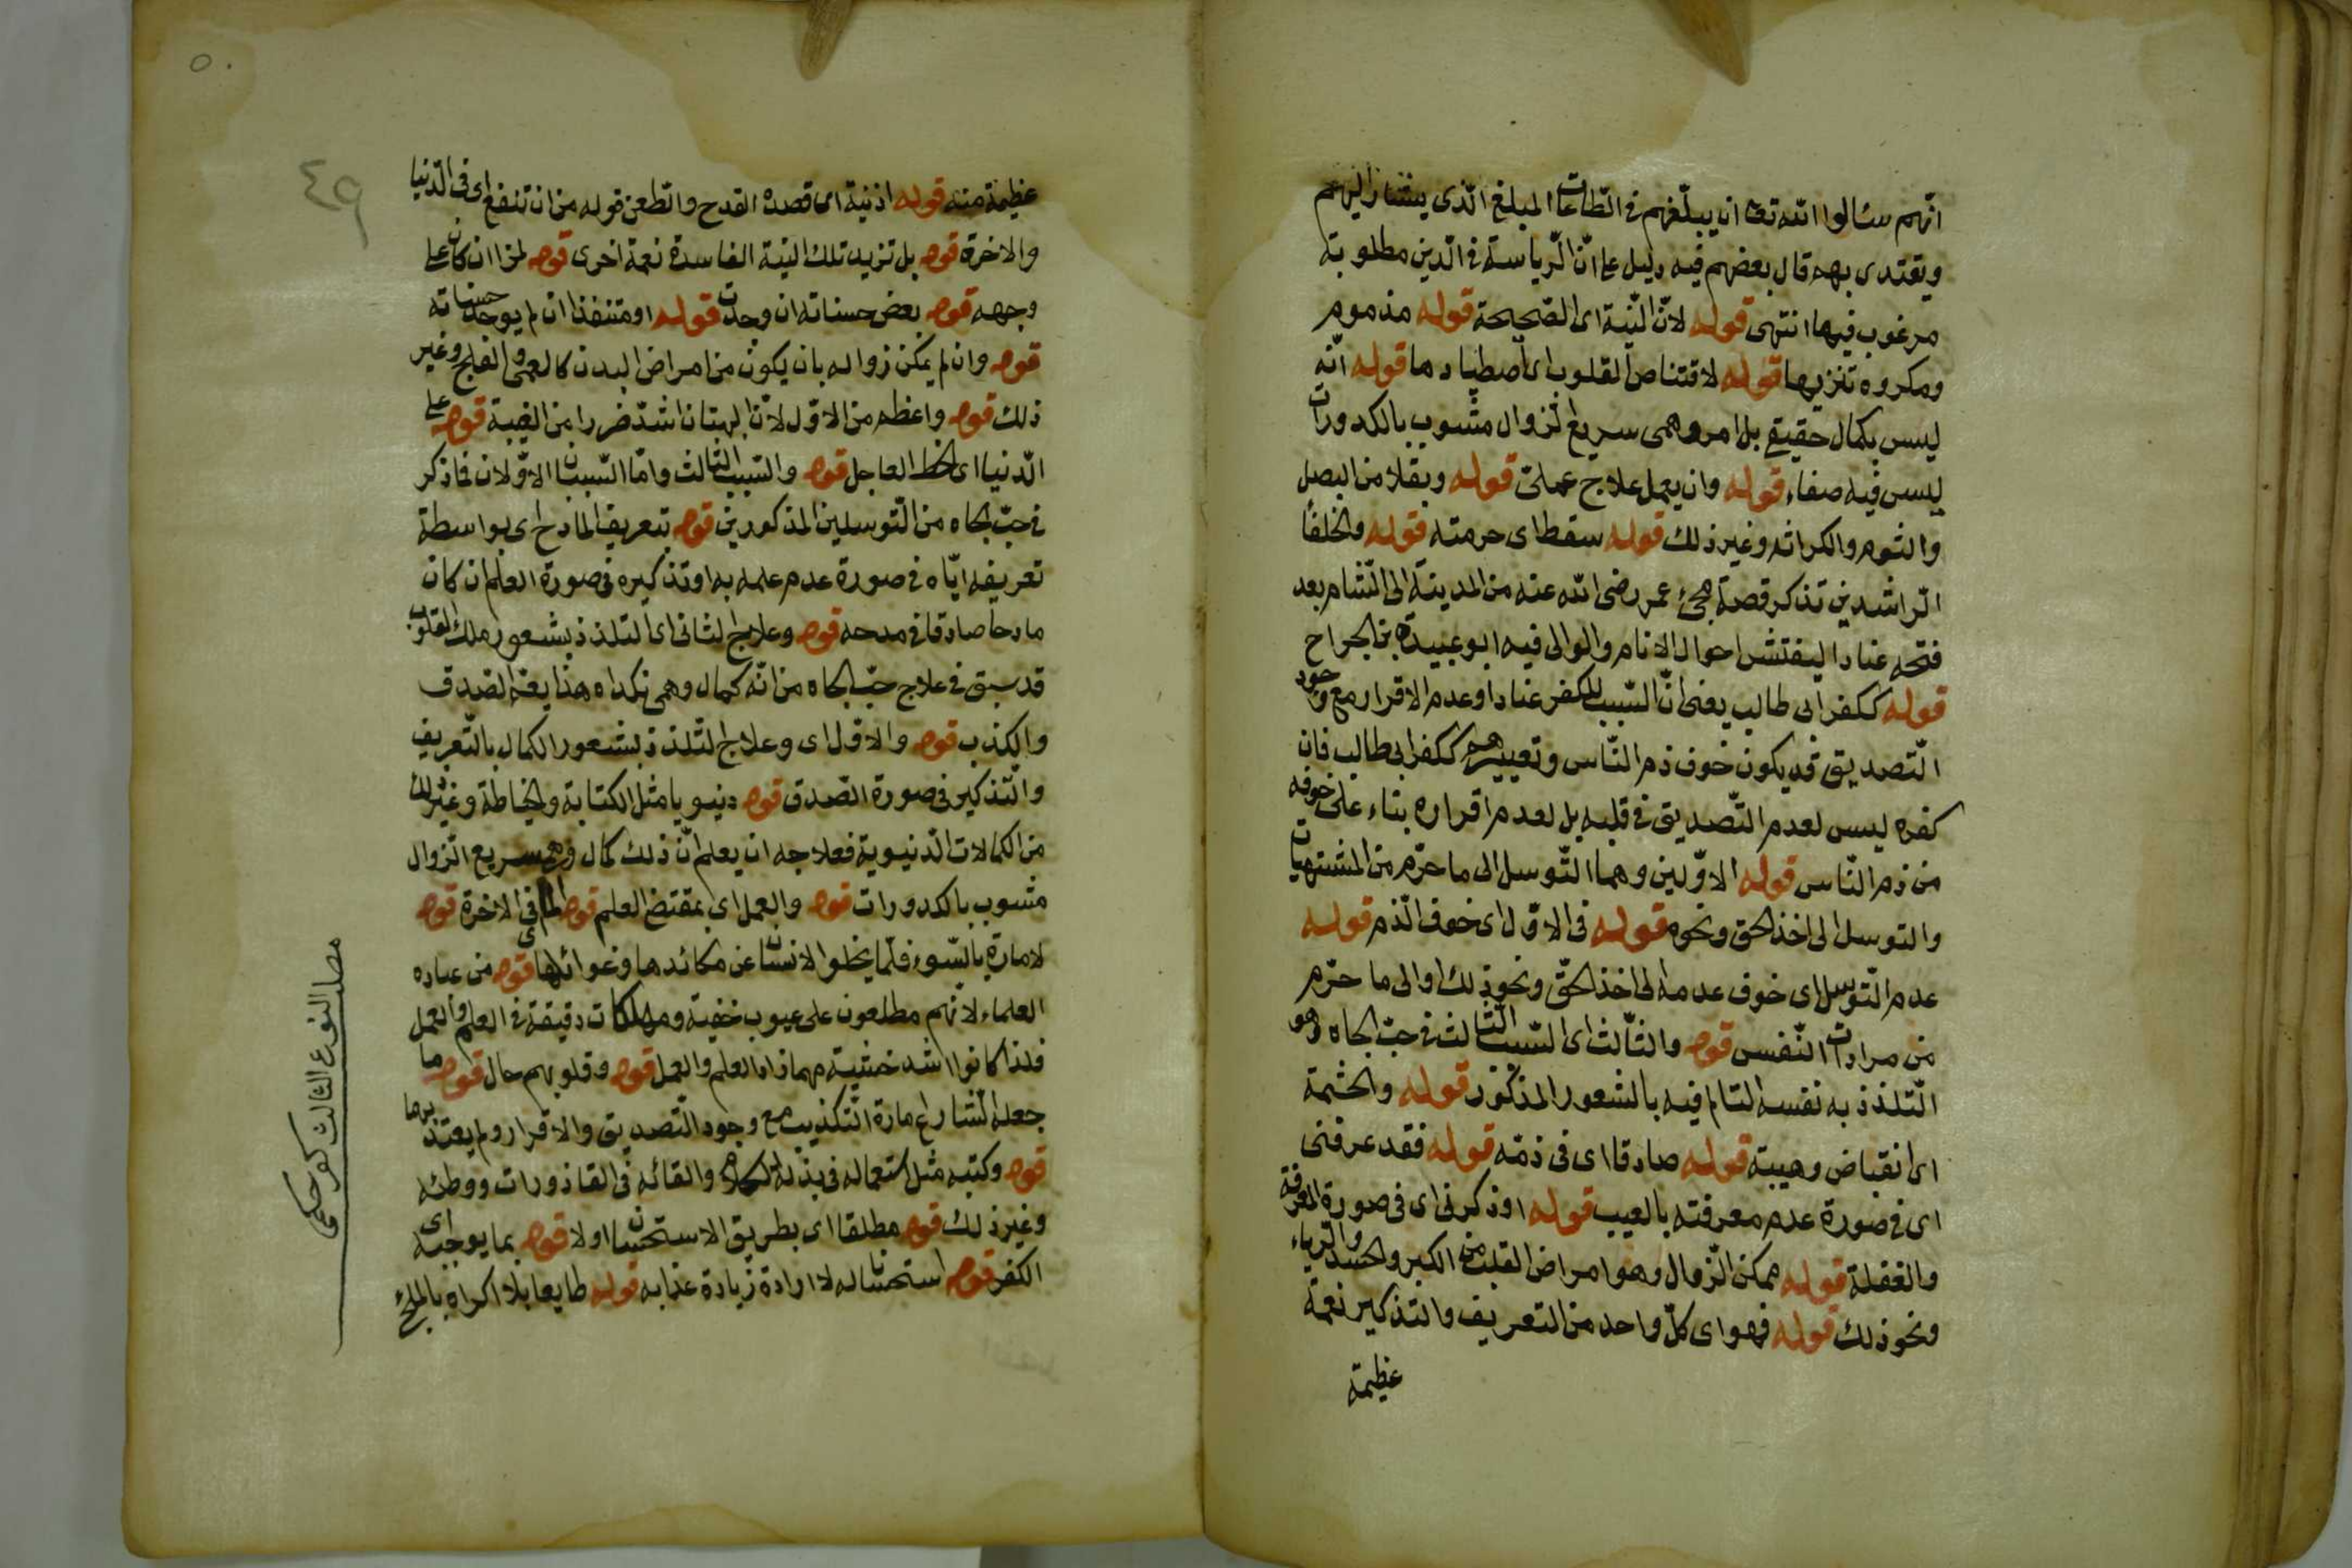 انّهم سئالوا الله تعا ان يبلّغهم فى الطّاعات المبلغ الّذى يشار اليهم
ويقتدى بهم قال بعضهم فيه دليل على انّ الرّياسة فى الدّين مطلوبة
مرغوب فيها انتهى قوله لانّ النّية اى الصّحيحة قوله مذموم
ومكروه تنزيها قوله لاقتناص القلوب اى اصطيادها قوله انّه
ليس بكمال حقيقى بل امر وهمى سريع الزّوال مشوب بالكدورات
ليس فيه صفاء قوله وان يعمل علاج عملىّ قوله وبقلا من البصل
والثوم والكراث وغير ذلك قوله سقط اى حرمته قوله والخلفأ
الرّاشدين تذكر قصة مجئ عمر رضى الله عنه من المدينة الى الشّام بعد
فتحه عنادا ليفتّش احوال الانام والوالى فيه ابو عبيدة بن الجراح
قوله ككفر ابى طالب يعنى انّ السّبب للكفر عنادا وعدم الاقرار مع وجود
التّصديق قد يكون خوف ذم النّاس وتعييرهم ككفر ابى طالب فان
كفره ليس لعدم التّصديق فى قلبه بل لعدم اقراره بناء على خوفه
من ذم النّاس قوله الاوّلين وهما التّوسل الى ما حرّم من المشتهيات
والتوسل الى اخذ الحق ونحوه قوله فى الاوّل اى خوف الذّم قوله
عدم التّوسل اى خوف عدمه الى اخذ الحقّ ونحو ذلك او الى ما حرّم
من مرادات النّفس قوله والثّالث اى السّبب الثّالث فى حبّ الجاه وهو
التّلذذ به نفسه التا لم فيه بالشعور المذكور قوله والحشمة
اى انقباض وهيبة قوله صادقا اى فى ذمّه قوله فقد عرفنى
اى فى صورة عدم معرفته بالعيب قوله او ذكرنى اى فى صورة المعرفة
والغفلة قوله ممكن الزّوال وهو امراض القلب من الكبر والحسد والرّياء
ونحو ذلك قوله فهو اى كلّ واحد من التعريف والتذكير نعمة
عظيمة
٤٩
عظيمة منه قوله اذ نية اى قصده القدح والطّعن قوله من ان تنفع اى فى الدّنيا
والاخرة قوله بل تزيد تلك النية الفاسدة نعمة اخرى قوله لمزا ان كان على
وجهه قوله بعض حسناته ان وجدت قوله او متنفذا ان لم يوجد حسناته
قوله وان لم يمكن زواله بان يكون من امراض البدن كالعمى والفلج وغير
ذلك قوله واعظم من الاوّل لانّ البهتان اشدّ ضررا من الغيبة قوله على
الدّنيا اى الحظ العاجل قوله والسّبب الثالث وامّا السّببان الاوّلان فما ذكر
فى حبّ الجاه من التّوسلين المذكورين قوله بتعريف المادح اى بواسطة
تعريفه ايّاه فى صورة عدم علمه به او تذكيره فى صورة العلم ان كان
مادحا صادقا فى مدحه قوله وعلاج الثانى اى التلذذ بشعور ملك القلوب
قد سبق فى علاج حبّ الجاه من انّه كمال وهمى نكداه هذا يعمّ الصّدق
والكذب قوله والاوّل اى وعلاج التلذذ بشعور الكمال بالتّعريف
والتّذكير فى صورة الصّدق قوله دنيويا مثل الكتابة والخياطة وغير ذلك
من الكمالات الدّنيوية فعلاجه ان يعلم انّ ذلك كمال وهمى سريع الزّوال
مشوب بالكدورات قوله والعمل اى بمقتضى العلم قوله فى الاخرة قوله
لامارة بالسّوء فلمّا يخلو الانسان عن مكائدها وغوائلها قوله من عباده
العلماء لانّهم مطلعون على عيوب خفيّة ومهلكات دقيقة فى العلم والعمل
فلذا كانوا اشد خشية مهما زاد العلم والعمل قوله وقلوبهم حال قوله ما
جعله الشّارع امارة التّكذيب مع وجود التّصديق والاقرار ولم يعتذ بهما
قوله وكتبه مثل استعماله فى بذلة والقائه فى القاذورات ووطئه
وغير ذلك قوله مطلقا اى بطريق الاستحسان اولا قوله بما يوجبه اى
الكفر قوله استحسانا له لا ارادة زيادة عذابه قوله طايعا بلا اكراه بالملجئ
مصلب النوع الثالث كفر حكمى